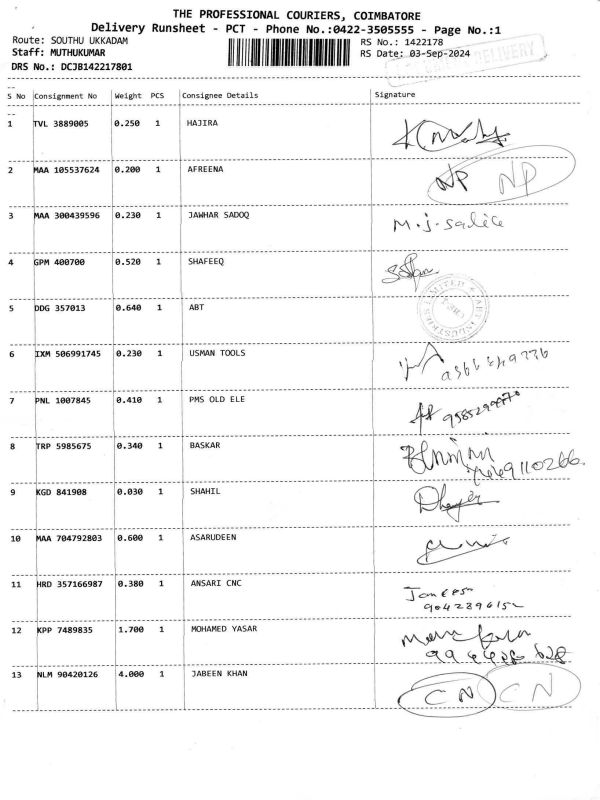 THE PROFESSIONAL COURIERS, COIMBATORE
Delivery Runsheet - PCT - Phone No.:0422-3505555 - Page No.:1
Route: SOUTHU UKKADAM RS No.: 1422178
Staff: MUTHUKUMAR RS Date: 03-Sep-2024
DRS No.: DCJB142217801
DELIVERY
S No Consignment No Weight PCS Consignee Details Signature
1 TVL 3889005 0.250 1 HAJIRA
2 MAA 105537624 0.200 1 AFREENA NP NP
3 MAA 300439596 0.230 1 JAWHAR SADOQ M.j.
4 GPM 400700 0.520 1 SHAFEEQ
5 DDG 357013 0.640 1 ABT
6 IXM 506991745 0.230 1 USMAN TOOLS
7 PNL 1007845 0.410 1 PMS OLD ELE
8 TRP 5985675 0.340 1 BASKAR
9 KGD 841908 0.030 1 SHAHIL
10 MAA 704792803 0.600 1 ASARUDEEN
11 HRD 357166987 0.380 1 ANSARI CNC
12 KPP 7489835 1.700 1 MOHAMED YASAR
13 NLM 90420126 4.000 1 JABEEN KHAN CN CN